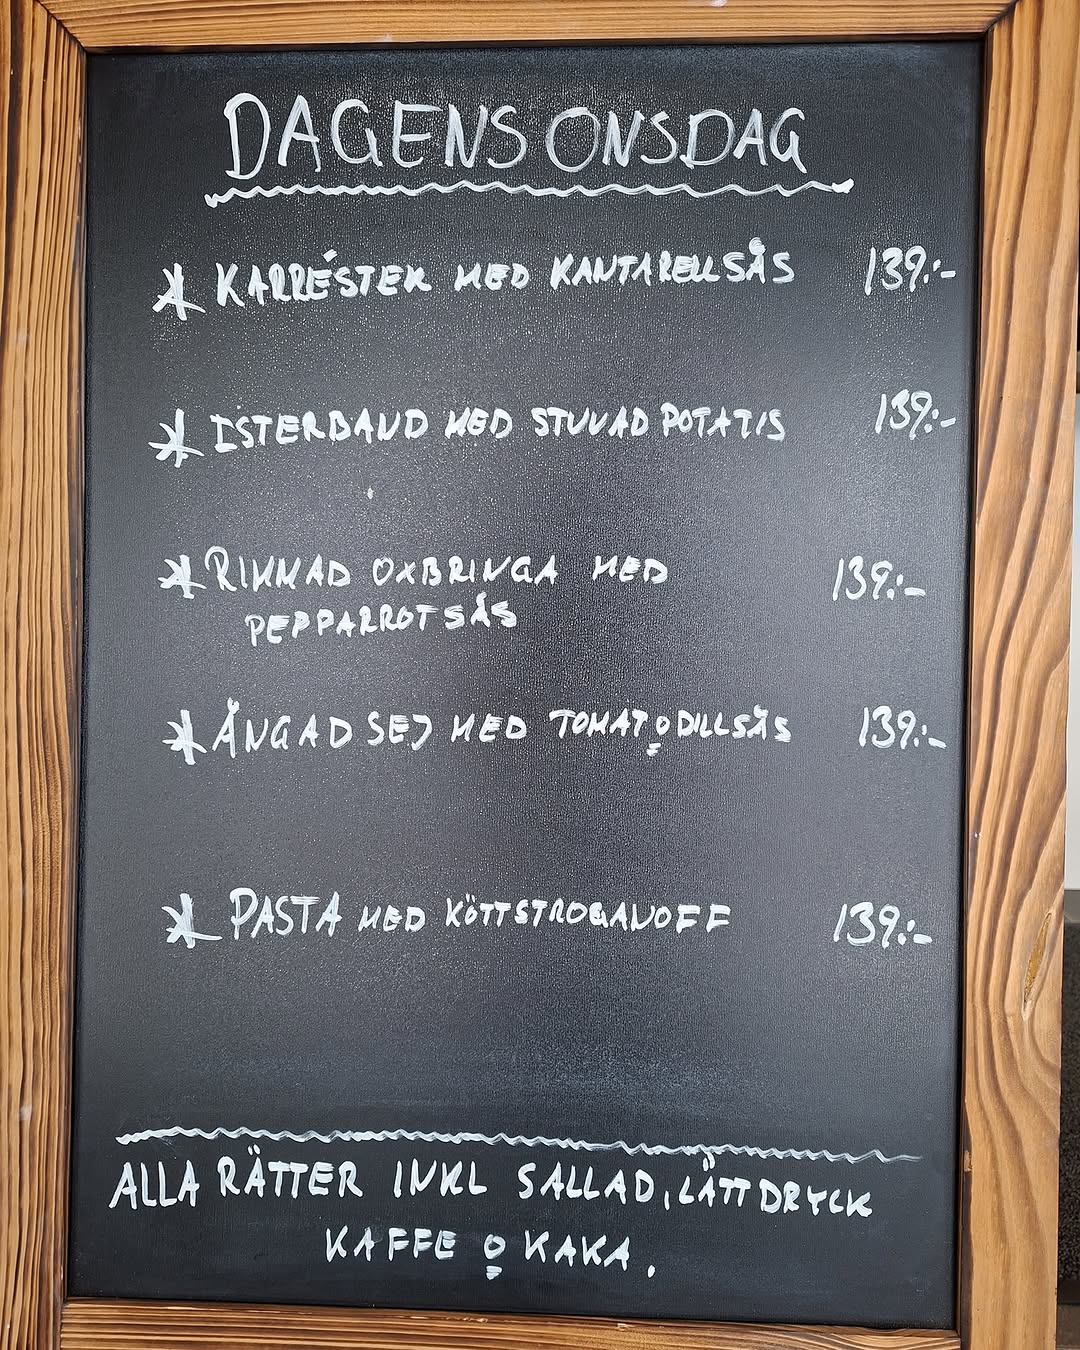 DAGENS ONSDAG
* KARRÉSTEK MED KANTARELLSÅS 139:-
* ISTERBAND MED STUVAD POTATIS 139:-
* RIMMAD OXBRINGA MED 139:-
PEPPARROTSÅS
* ÅNGAD SEJ MED TOMAT o DILLSÅS 139:-
* PASTA MED KÖTTSTROGANOFF 139:-
ALLA RÄTTER INKL SALLAD, LÄTTDRYCK
KAFFE o KAKA.